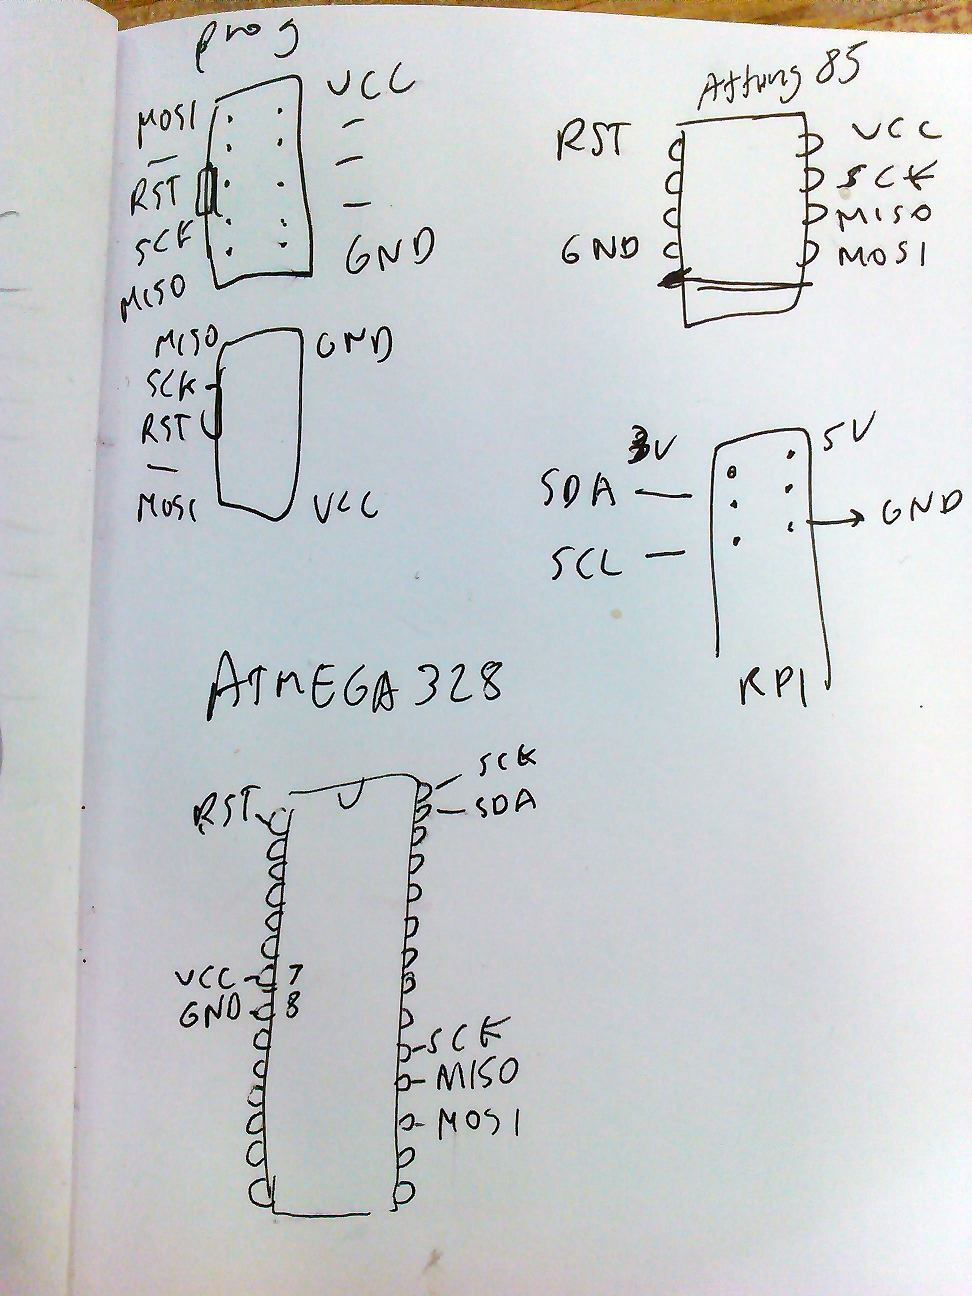 prog
MOSI VCC
— —
RST —
SCK —
MISO GND
MISO GND
SCK
RST
—
MOSI VCC
Attiny 85
RST VCC
SCK
MISO
GND MOSI
3V 5V
SDA — GND
SCL —
RPI
ATMEGA 328
SCK
RST SDA
VCC 7
GND 8
SCK
MISO
MOSI